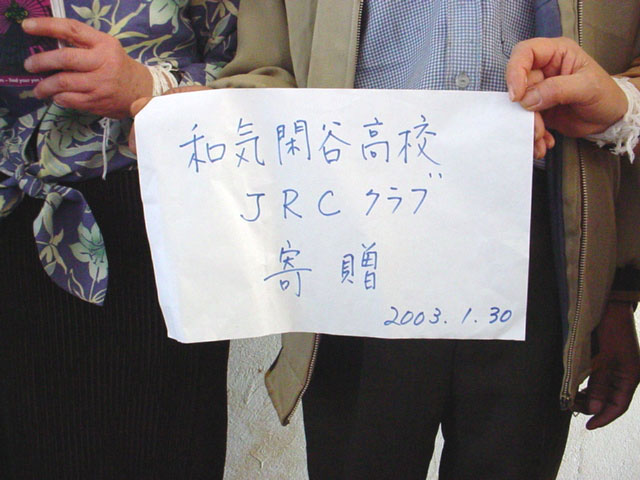 和気閑谷高校
JRCクラブ
寄贈
2003.1.30